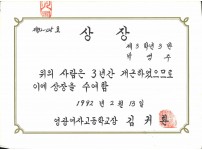 상장
제3학년3반
박영수
위의 사람은 3년간 개근하였으므로
이에 상장을 수여함
1992년 2월 13일
영광여자고등학교장 김커환